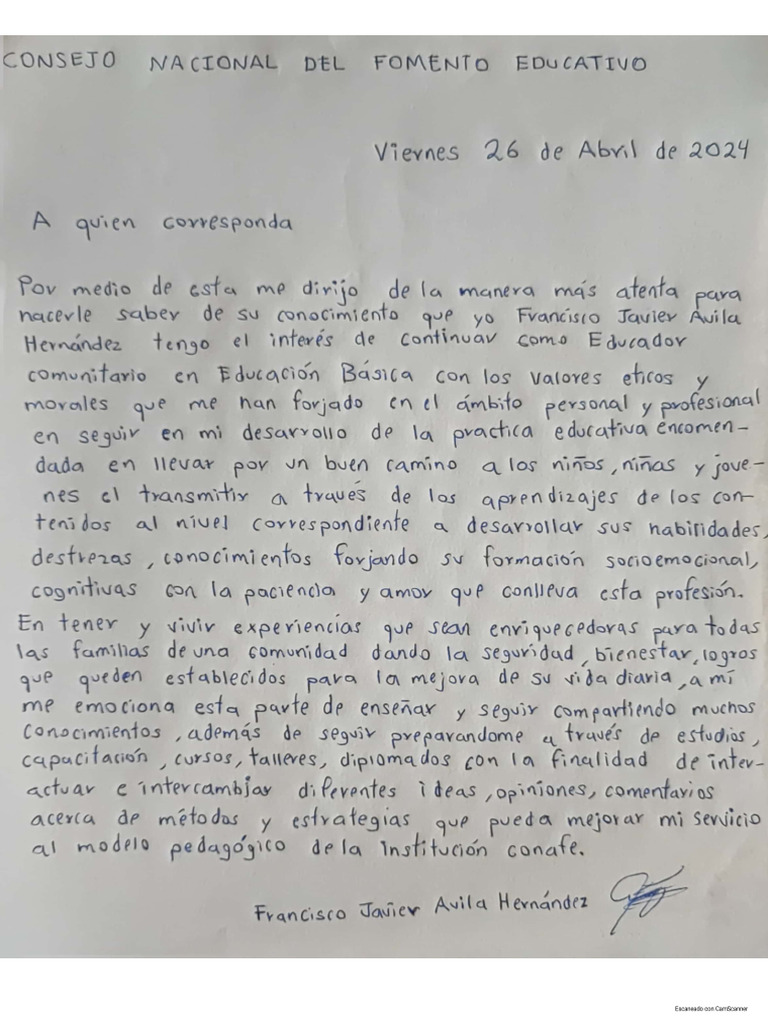 CONSEJO NACIONAL DEL FOMENTO EDUCATIVO
Viernes 26 de Abril de 2024
A quien corresponda
Por medio de esta me dirijo de la manera más atenta para
hacerle saber de su conocimiento que yo Francisco Javier Avila
Hernández tengo el interés de continuar como Educador
comunitario en Educación Básica con los valores eticos y
morales que me han forjado en el ámbito personal y profesional
en seguir en mi desarrollo de la practica educativa encomen-
dada en llevar por un buen camino a los niños, niñas y jove-
nes el transmitir a través de los aprendizajes de los con-
tenidos al nivel correspondiente a desarrollar sus habilidades,
destrezas, conocimientos forjando su formación socioemocional,
cognitivas con la paciencia y amor que conlleva esta profesión.
En tener y vivir experiencias que sean enriquecedoras para todas
las familias de una comunidad dando la seguridad, bienestar, logros
que queden establecidos para la mejora de su vida diaria, a mí
me emociona esta parte de enseñar y seguir compartiendo muchos
conocimientos, además de seguir preparandome a través de estudios,
capacitación, cursos, talleres, diplomados con la finalidad de inter-
actuar e intercambiar diferentes ideas, opiniones, comentarios
acerca de métodos y estrategias que pueda mejorar mi servicio
al modelo pedagógico de la institución conafe.
Francisco Javier Avila Hernández
Escaneado con CamScanner